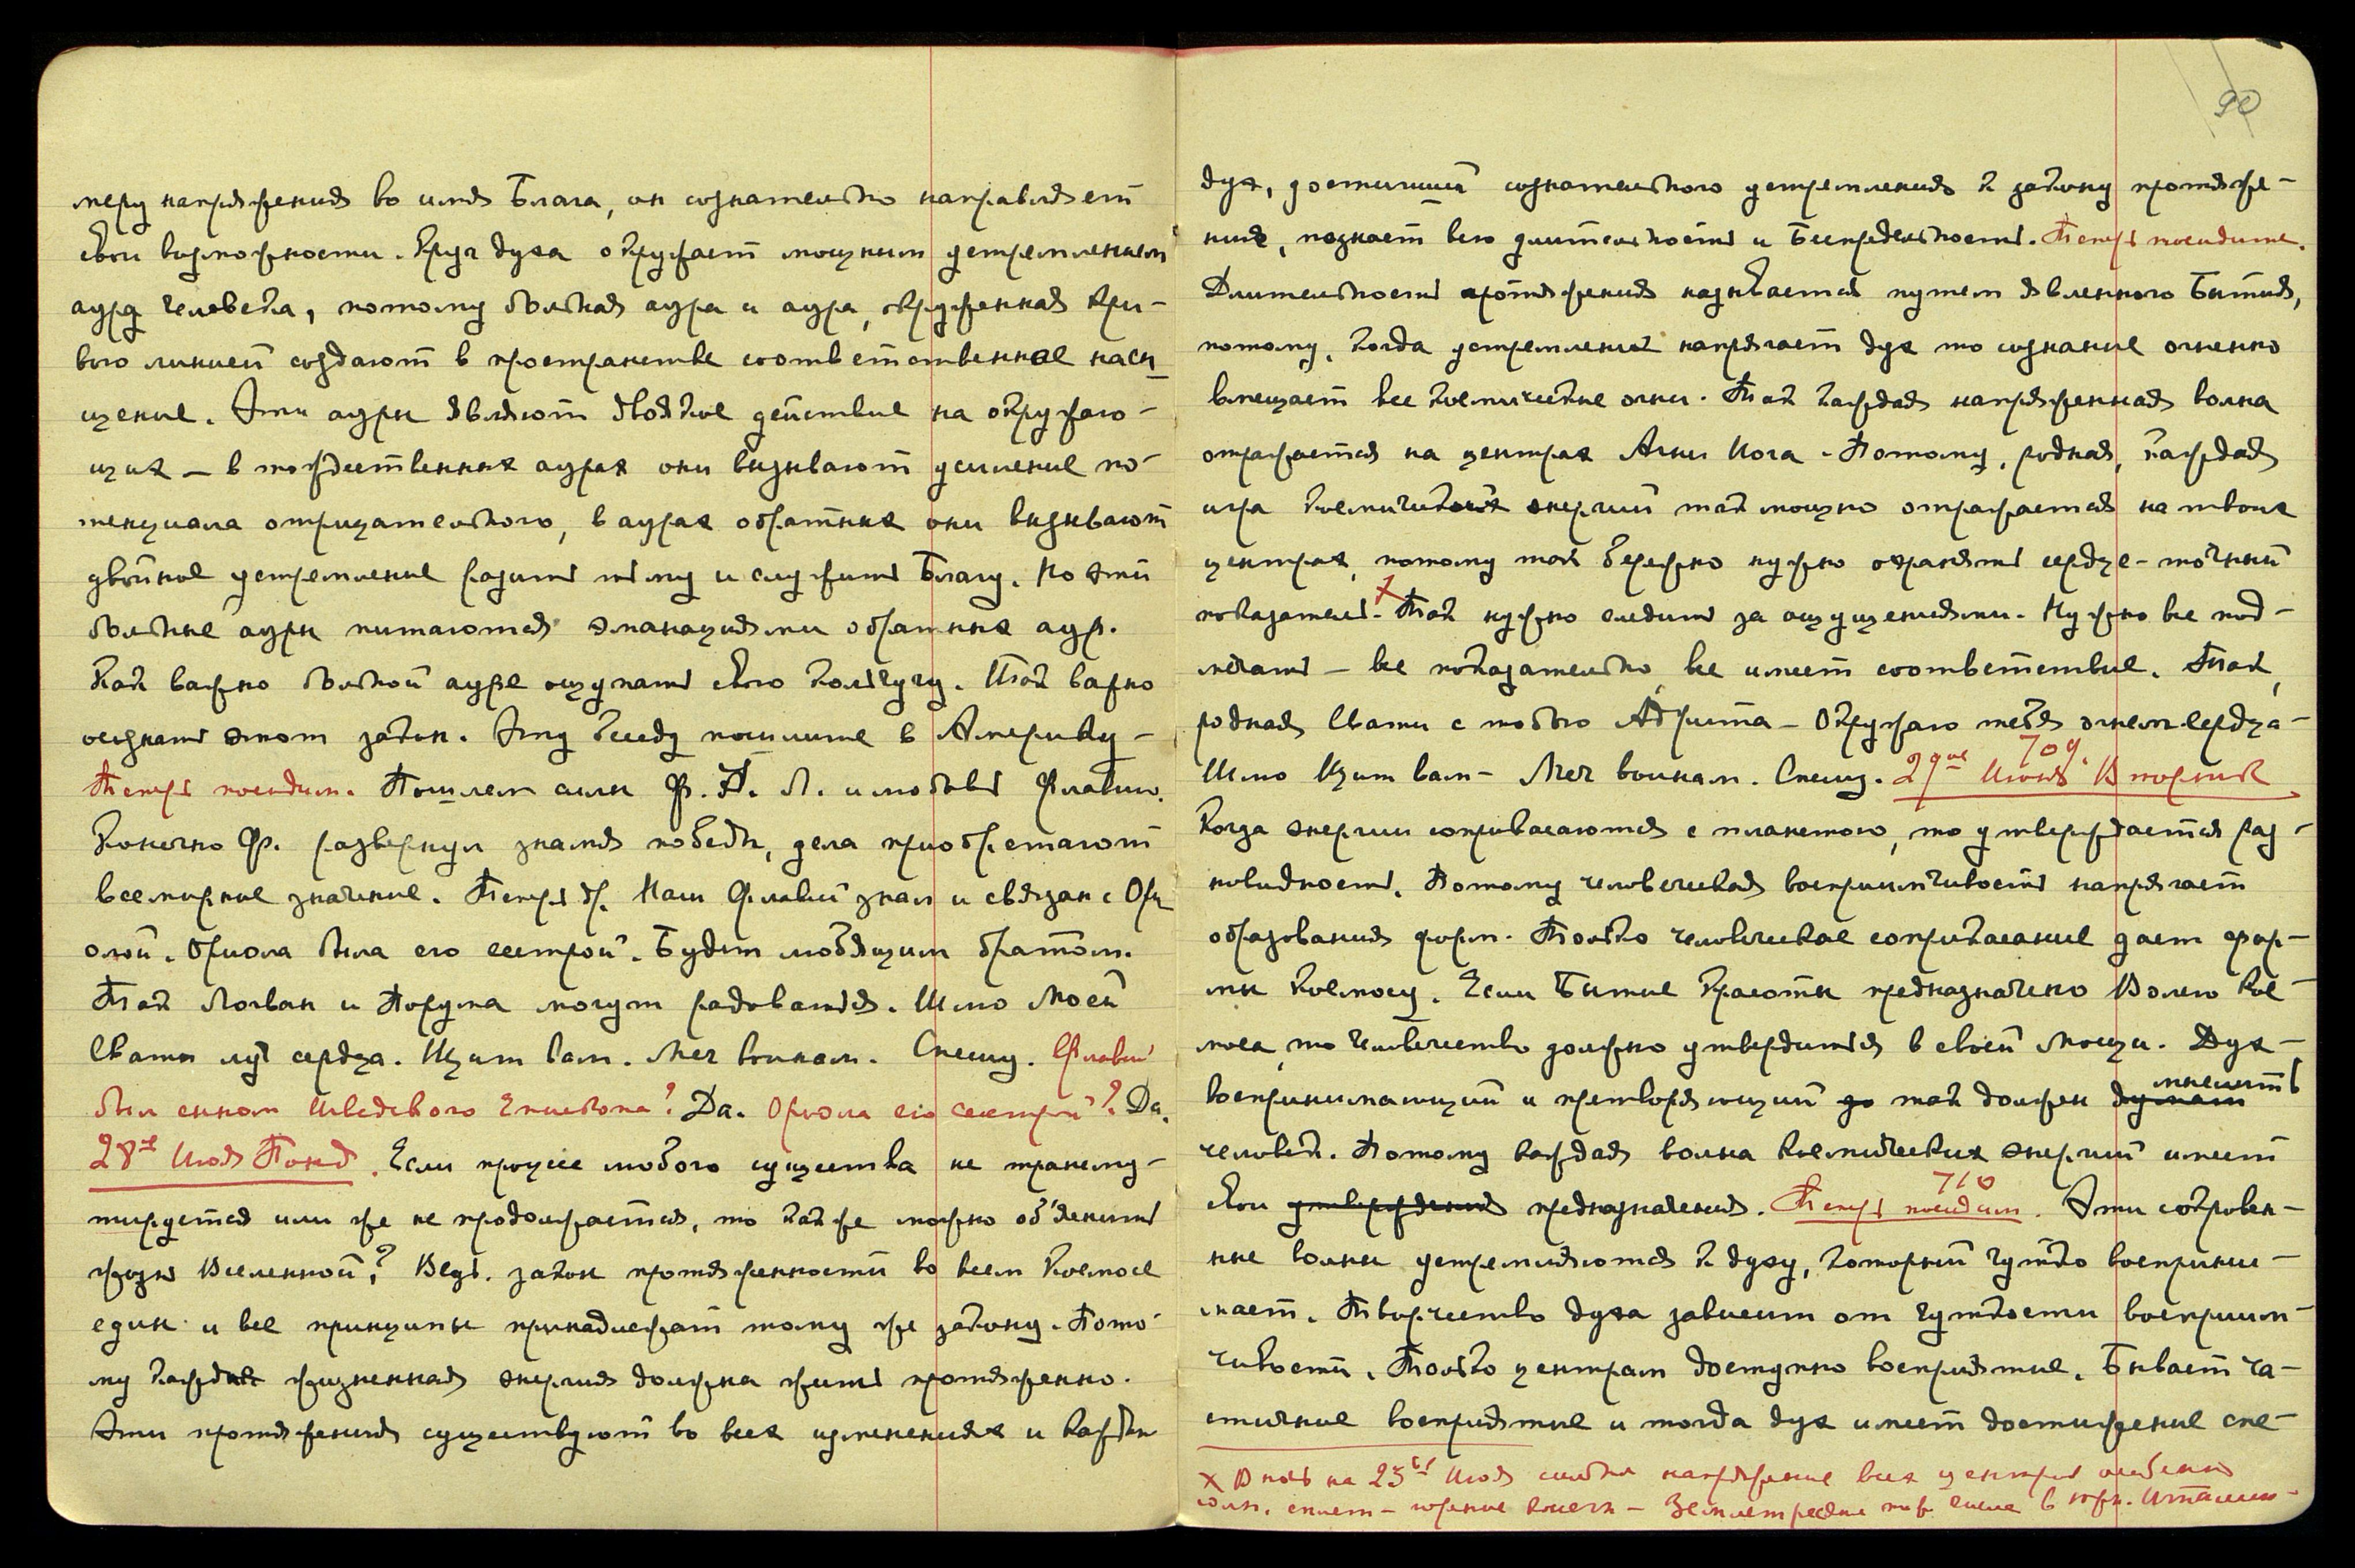 меру напряжения во имя Блага, он сознательно направляет
свои возможности. Круг духа окружает мощным устремленным
ауру человека, потому больная аура и аура, окруженная кри-
вою линией создают в пространстве соответственное насы
щение. Эти ауры являют двоякое действие на окружаю-
щих — в тождественных аурах они вызывают усиление по-
тенциала отрицательного, в аурах обратных они вызывают
двойное устремление разить тьму и служить Благу. Но эти
больные ауры питаются эманациями обратных аур.
Как важно больной ауре ощупать свою кольчугу. Так важно
осознать этот закон. Эту беседу пошлите в Америку —
Теперь посидим. Пошлем силы Ф. Л. и любовь Флавию.
Конечно Ф. развернул знамя победы, дела приобретают
всемирное значение. Теперь др. Наш Флавий знал и связан с Ори
олой. Ориола была его сестрой. Будет любящим братом.
Так Логван и Порума могут радоваться. Шлю Моей
Свати луч сердца. Щит вам. Меч воинам. Спешу. Флавий
был сыном шведского Епископа? Да. Ориола его сестрой? Да.
28е Июля Понд. Если процесс любого существа не трансму-
тируется или же не продолжается, то как же можно об'яснить
жизнь Вселенной? Ведь закон протяженности во всем Космосе
един и все принципы принадлежат тому же закону. Пото-
му каждая жизненная энергия должна жить протяженно.
Эти протяжения существуют во всех изменениях и каждый
90
дух, достигший сознательного устремления к закону протяже-
ния, познает всю длительность и Беспредельность. Теперь посидите.
Длительность протяжения называется путем явленного Бытия,
потому, когда устремление напрягает дух то сознание огненно
вмещает все космические огни. Так каждая напряженная волна
отражается на центрах Агни Йога. Потому, родная, каждая
игра космических энергий так мощно отражается на твоих
центрах, потому так бережно нужно охранять сердце — точный
показатель. х Так нужно следить за ощущениями. Нужно все под-
мечать — все показательно, все имеет соответствие. Так,
родная Свати с тобою — Окружаю тебя огнем сердца —
Шлю Щит вам — Меч воинам. Спешу. 29ое Июля Вторник
709
Когда энергии соприкасаются с планетою, то утверждается раз-
новидность. Потому человеческая восприимчивость напрягает
образования форм. Только человеческое соприкасание дает фор-
мы Космосу. Если Бытие Красоты предназначено Волею Кос-
моса, то человечество должно утвердиться в своей мощи. Дух —
воспринимающий и претворяющий до так должен думать мыслить
человек. Потому каждая волна космических энергий имеет
свои утверждения предназначения. Теперь посидим. Эти сокровен-
710
ные волны устремляются к духу, который чутко восприни-
мает. Творчество духа зависит от чуткости восприим-
чивости. Только центрам доступно восприятие. Бывает ча-
стичное восприятие и тогда дух имеет достижение спе-
х В ночь на 23ье Июля сильное напряжение всех центров особенно
солн. сплет. — горение — Землетрясение в южн. Италии